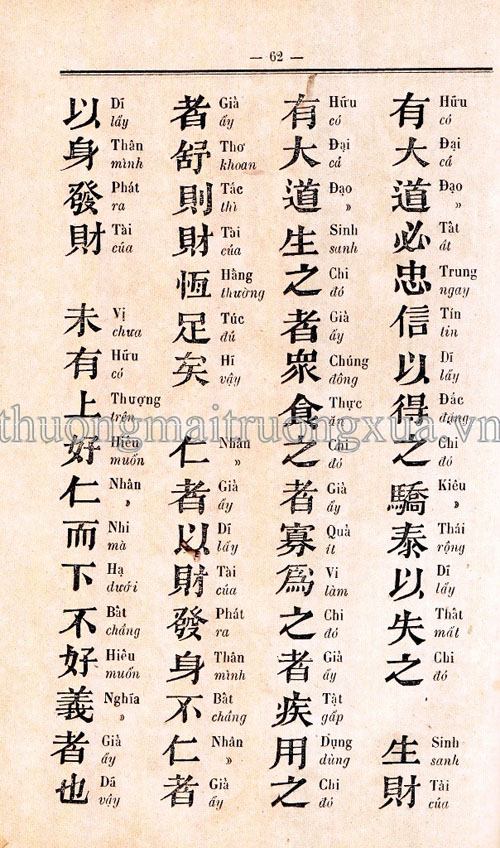 — 62 —
有 Hữu có
大 Đại cả
道 Đạo »
必 Tất ắt
忠 Trung ngay
信 Tín tin
以 Dĩ lấy
得 Đắc đặng
之 Chi đó
驕 Kiêu »
泰 Thái rộng
以 Dĩ lấy
失 Thất mất
之 Chi đó
生 Sinh sanh
財 Tài của
有 Hữu có
大 Đại cả
道 Đạo »
生 Sinh sanh
之 Chi đó
者 Giả ấy
衆 Chúng đông
食 Thực ăn
之 Chi đó
者 Giả ấy
寡 Quả ít
爲 Vi làm
之 Chi đó
者 Giả ấy
疾 Tật gấp
用 Dụng dùng
之 Chi đó
者 Giả ấy
舒 Thơ khoan
則 Tắc thì
財 Tài của
恆 Hằng thường
足 Túc đủ
矣 Hĩ vậy
仁 Nhân »
者 Giả ấy
以 Dĩ lấy
財 Tài của
發 Phát ra
身 Thân mình
不 Bất chẳng
仁 Nhân »
者 Giả ấy
以 Dĩ lấy
身 Thân mình
發 Phát ra
財 Tài của
未 Vị chưa
有 Hữu có
上 Thượng trên
好 Hiếu muốn
仁 Nhân »
而 Nhi mà
下 Hạ dưới
不 Bất chẳng
好 Hiếu muốn
義 Nghĩa »
者 Giả ấy
也 Dã vậy
thuongmaitruongxua.vn